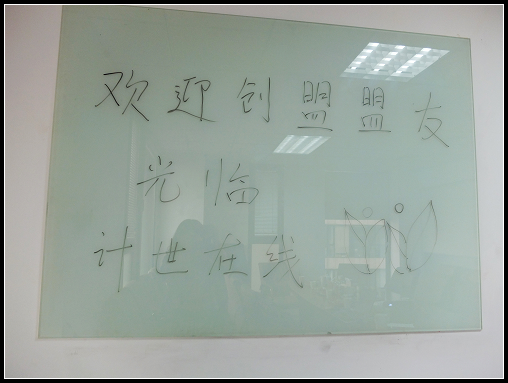 欢迎创盟盟友
光临
计世在线